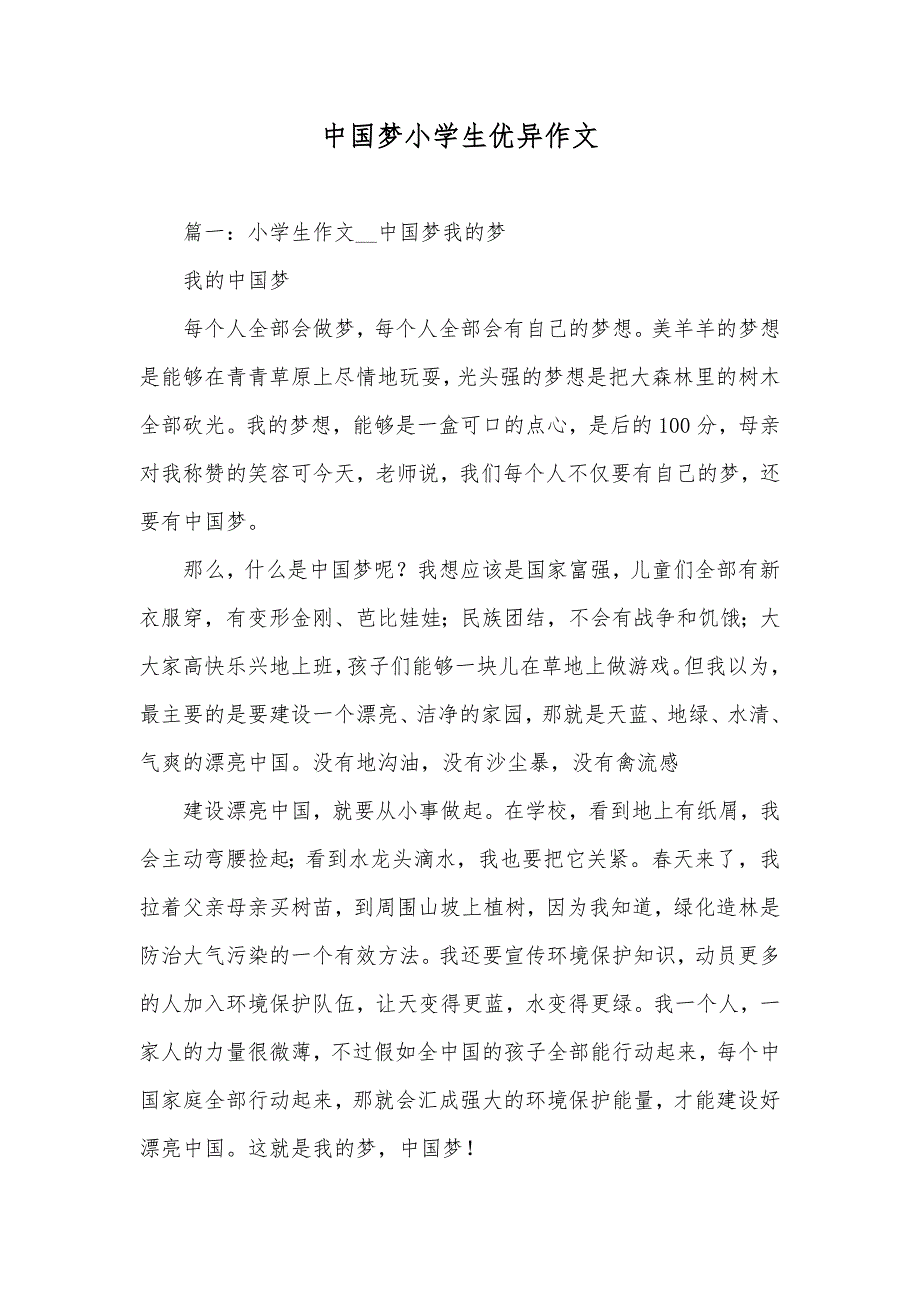 中国梦小学生优异作文
篇一：小学生作文__中国梦我的梦
我的中国梦
每个人全部会做梦，每个人全部会有自己的梦想。美羊羊的梦想
是能够在青青草原上尽情地玩耍，光头强的梦想是把大森林里的树木
全部砍光。我的梦想，能够是一盒可口的点心，是后的 100 分，母亲
对我称赞的笑容可今天，老师说，我们每个人不仅要有自己的梦，还
要有中国梦。
那么，什么是中国梦呢？我想应该是国家富强，儿童们全部有新
衣服穿，有变形金刚、芭比娃娃；民族团结，不会有战争和饥饿；大
大家高快乐兴地上班，孩子们能够一块儿在草地上做游戏。但我以为，
最主要的是要建设一个漂亮、洁净的家园，那就是天蓝、地绿、水清、
气爽的漂亮中国。没有地沟油，没有沙尘暴，没有禽流感
建设漂亮中国，就要从小事做起。在学校，看到地上有纸屑，我
会主动弯腰捡起；看到水龙头滴水，我也要把它关紧。春天来了，我
拉着父亲母亲买树苗，到周围山坡上植树，因为我知道，绿化造林是
防治大气污染的一个有效方法。我还要宣传环境保护知识，动员更多
的人加入环境保护队伍，让天变得更蓝，水变得更绿。我一个人，一
家人的力量很微薄，不过假如全中国的孩子全部能行动起来，每个中
国家庭全部行动起来，那就会汇成强大的环境保护能量，才能建设好
漂亮中国。这就是我的梦，中国梦！